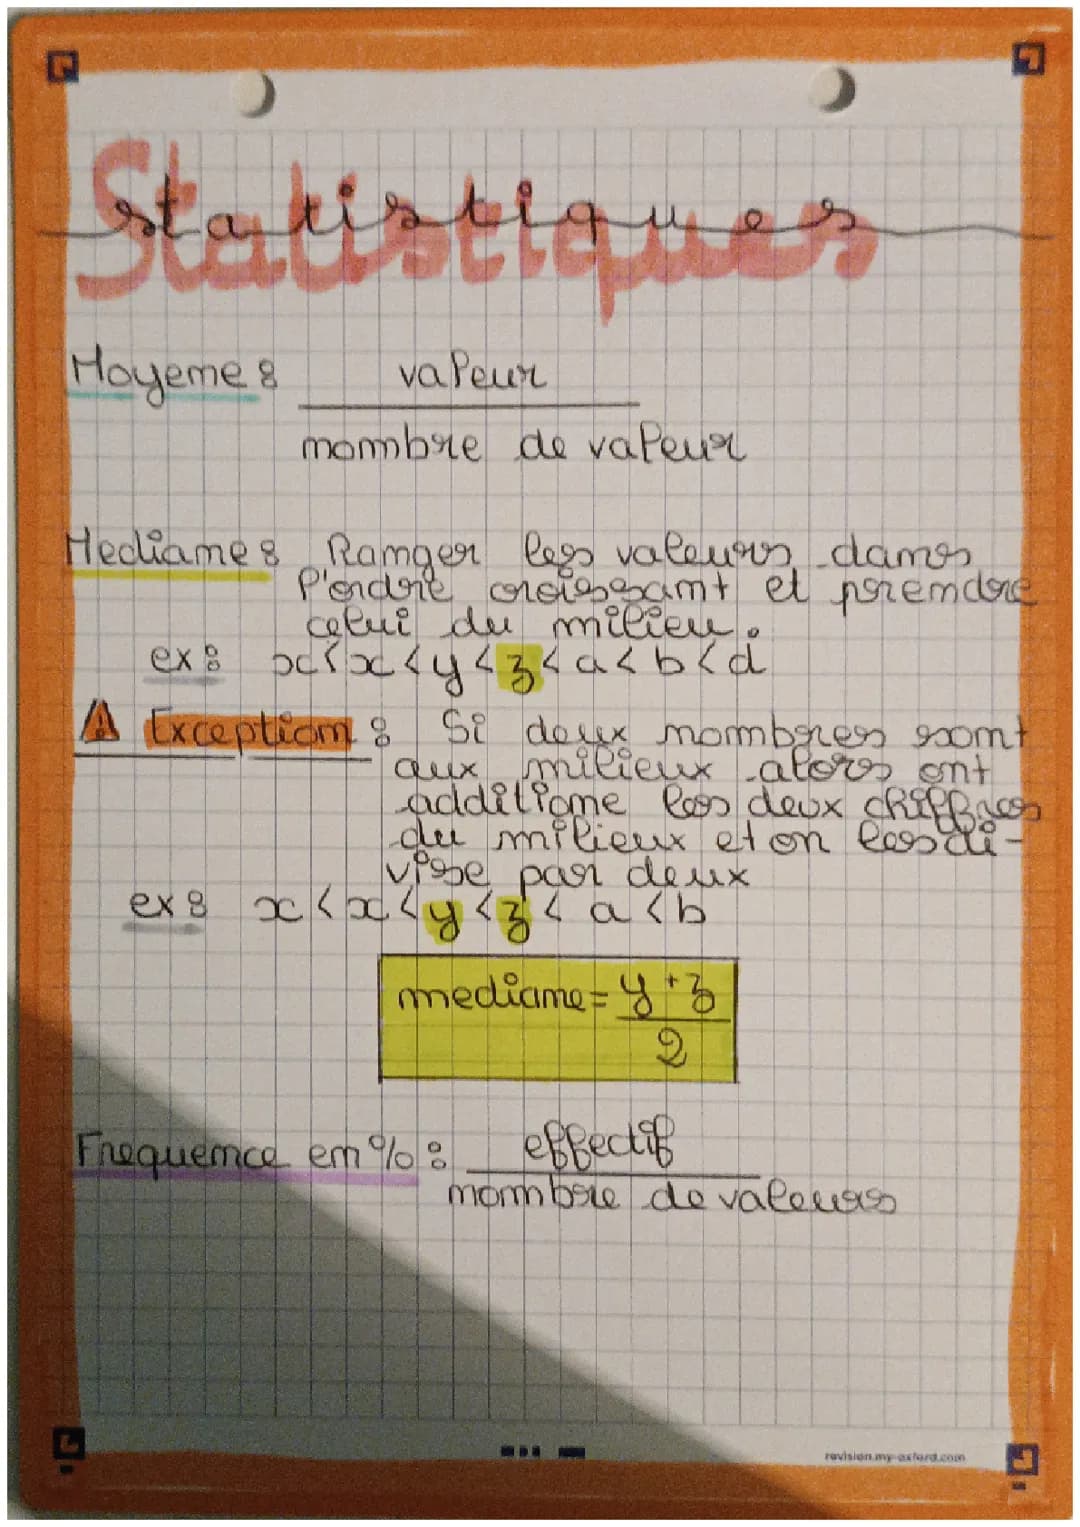 Statistiques
Moyenne : valeur
nombre de valeur
Mediane : Ranger les valeurs dans
l'ordre croissant et prendre
celui du milieu.
ex : x < x < y < z < a < b < d
⚠ Exception : Si deux nombres sont
aux milieux alors ont
additione les deux chiffres
du milieux et on les di-
vise par deux
ex : x < x < y < z < a < b
mediane = y + z
2
Frequence en % : effectif
nombre de valeurs
revision.my-oxford.com